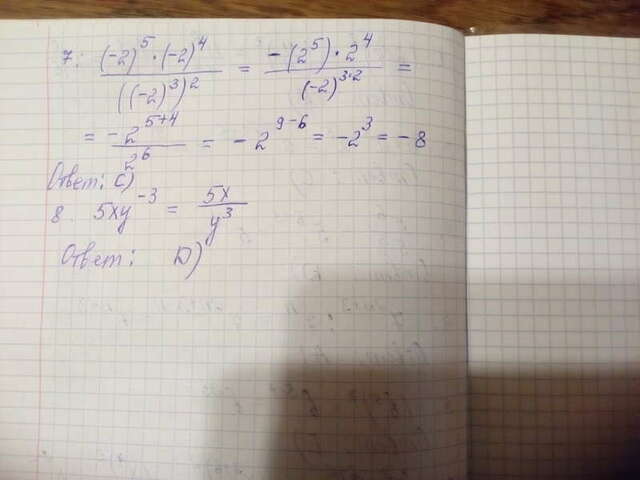 7: ((-2)^5 · (-2)^4) / (((-2)^3)^2) = (-(2^5) · 2^4) / ((-2)^(3·2)) =
= (-2^(5+4)) / (2^6) = -2^(9-6) = -2^3 = -8
Ответ: C)
8. 5xy^(-3) = 5x / y^3
Ответ: D)